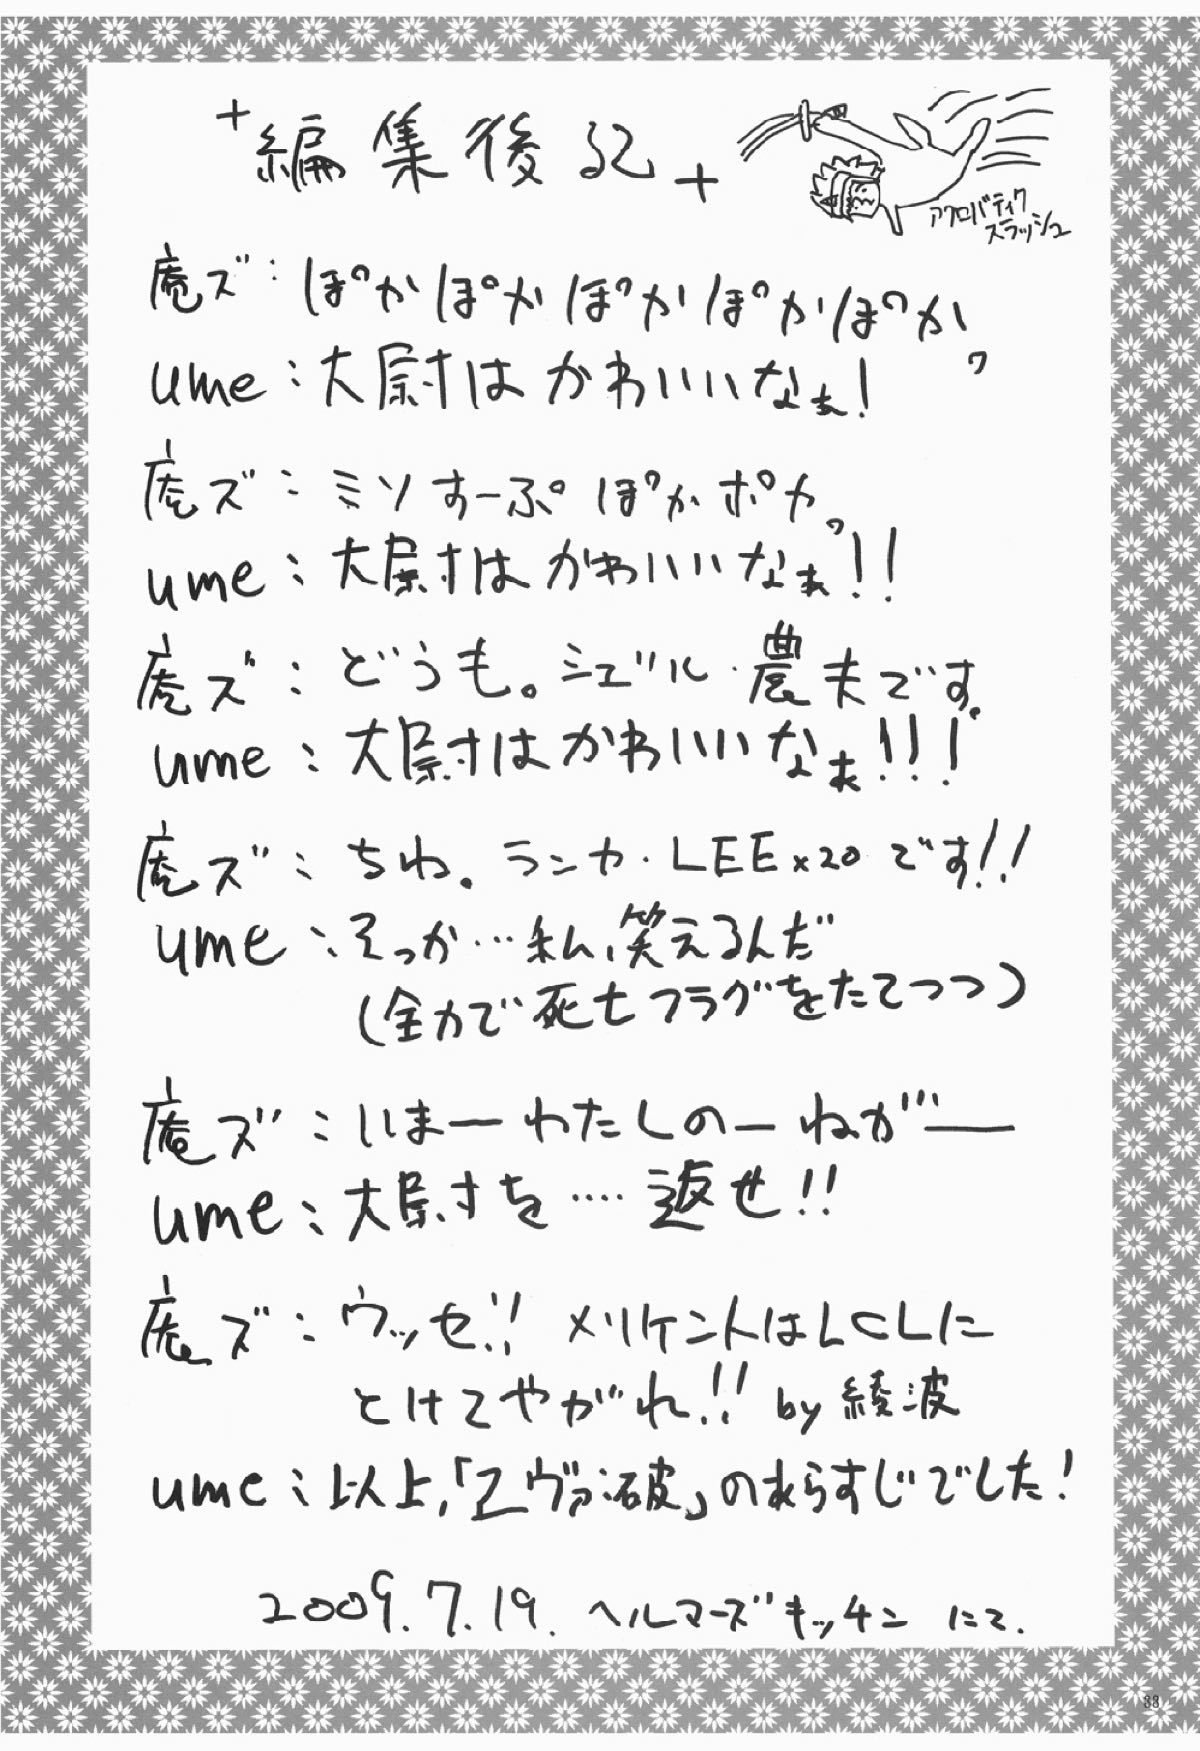 +編集後記+
アクロバティク
スラッシュ
庵ズ:ぽかぽかぽかぽかぽか。
ume:大尉はかわいいなぁ!
庵ズ:ミソすーぷぽかポカ。
ume:大尉はかわいいなぁ!!
庵ズ:どうも。シゲル・農夫です。
ume:大尉はかわいいなぁ!!!
庵ズ:ちわ。ランカ・LEE×20です!!
ume:そっか…私、笑えるんだ
(全力で死亡フラグをたてつつ)
庵ズ:いまーわたしのーねがーー
ume:大尉を‥‥返せ!!
庵ズ:ウッセ!! メリケントはLCLに
とけてやがれ!! by 綾波
ume:以上、「ヱヴァ破」のあらすじでした!
2009.7.19. ヘルマーズキッチン にて.
33